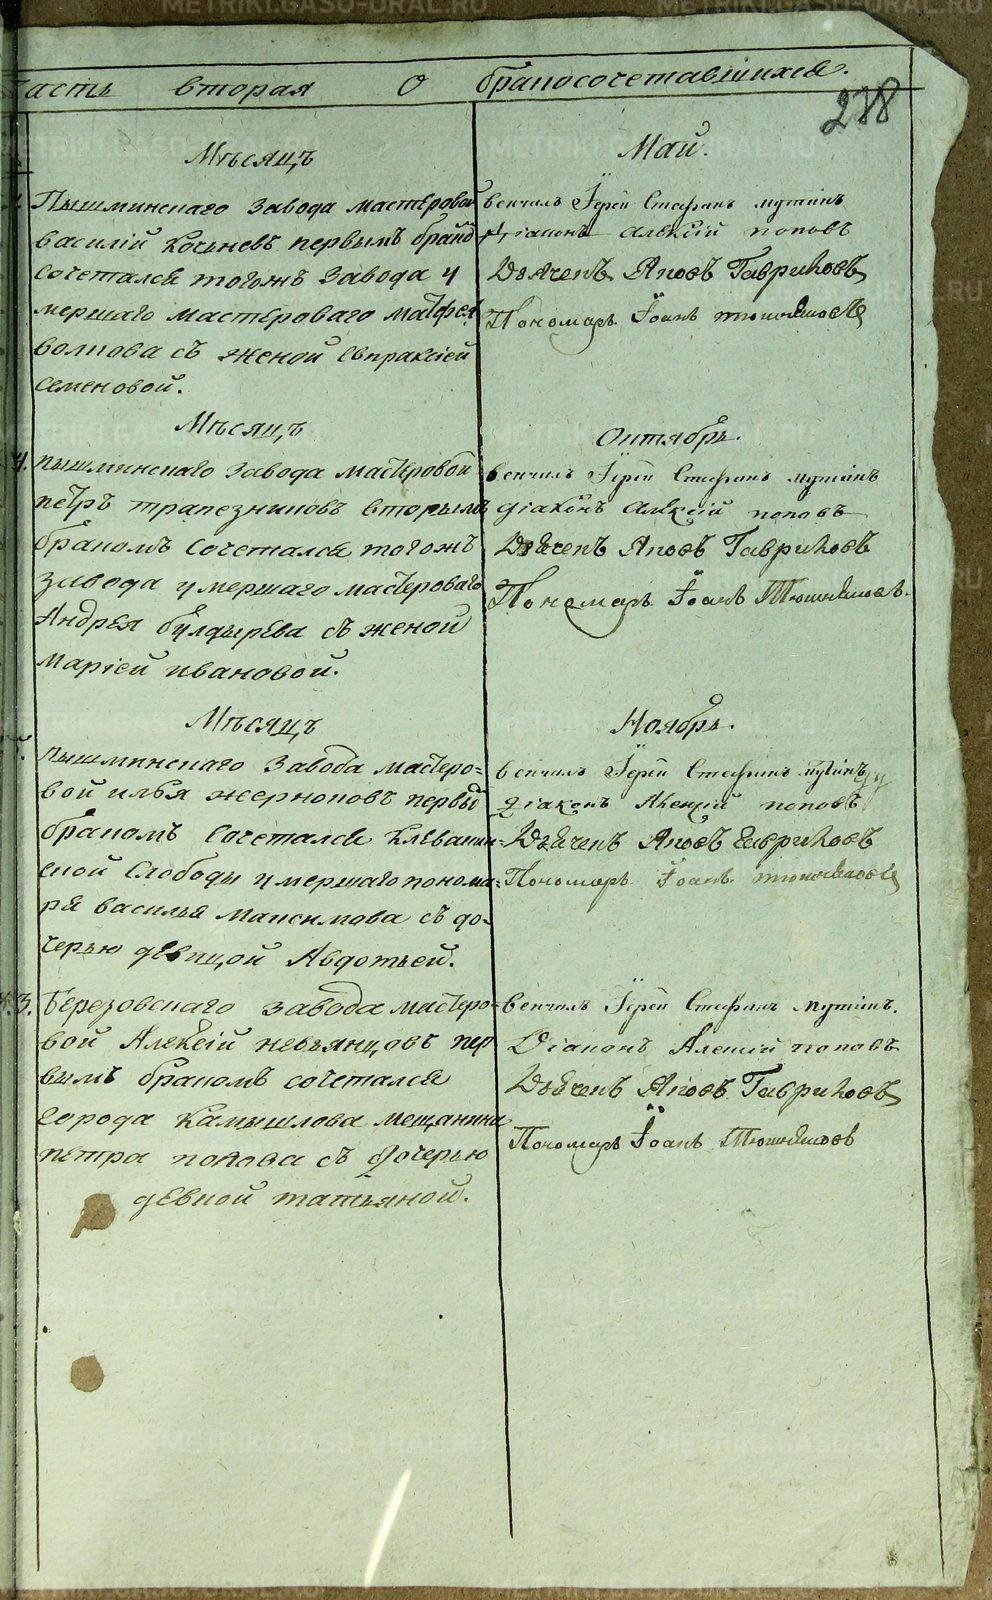 Часть вторая О бракосочетавшихся.
238
Мѣсяцъ Май.
Пышминскаго завода мастеровой
василій Кочневъ первымъ бракомъ
сочетался тогожъ завода у
мершаго мастероваго матфея
волкова съ женой Евпраксіей
Семеновой.
венчалъ Іерей Стефанъ мутинъ
діаконъ алексій поповъ
Дьячекъ Яковъ Гавриловъ
Пономарь Іоанъ
Мѣсяцъ Октябрь.
4. пышминскаго завода мастеровой
петръ трапезниковъ вторымъ
бракомъ сочетался тогожъ
завода умершаго мастероваго
Андрея булдырева съ женой
маріей ивановой.
венчалъ Іерей Стефанъ мутинъ
діаконъ алексій поповъ
Дьячекъ Яковъ Гавриловъ
Пономарь Іоанъ
Мѣсяцъ Ноябрь.
пышминскаго завода мастеро=
вой илья жерноковъ первый
бракомъ сочетался клевакин=
ской слободы умершаго понома=
ря василья максимова съ до=
черью девицой Авдотьей.
венчалъ Іерей Стефанъ мутинъ
діаконъ Алексій поповъ
Дьячекъ Яковъ Гавриловъ
Пономарь Іоанъ
3. Березовскаго завода мастеро=
вой Алексій невьянцовъ пер
вымъ бракомъ сочетался
города Камышлова мещанина
петра попова съ дочерью
девкой татьяной.
венчалъ Іерей Стефанъ мутинъ.
Діаконъ Алексій поповъ
Дьячекъ Яковъ Гавриловъ
Пономарь Іоанъ
METRIKI.GASO-URAL.RU